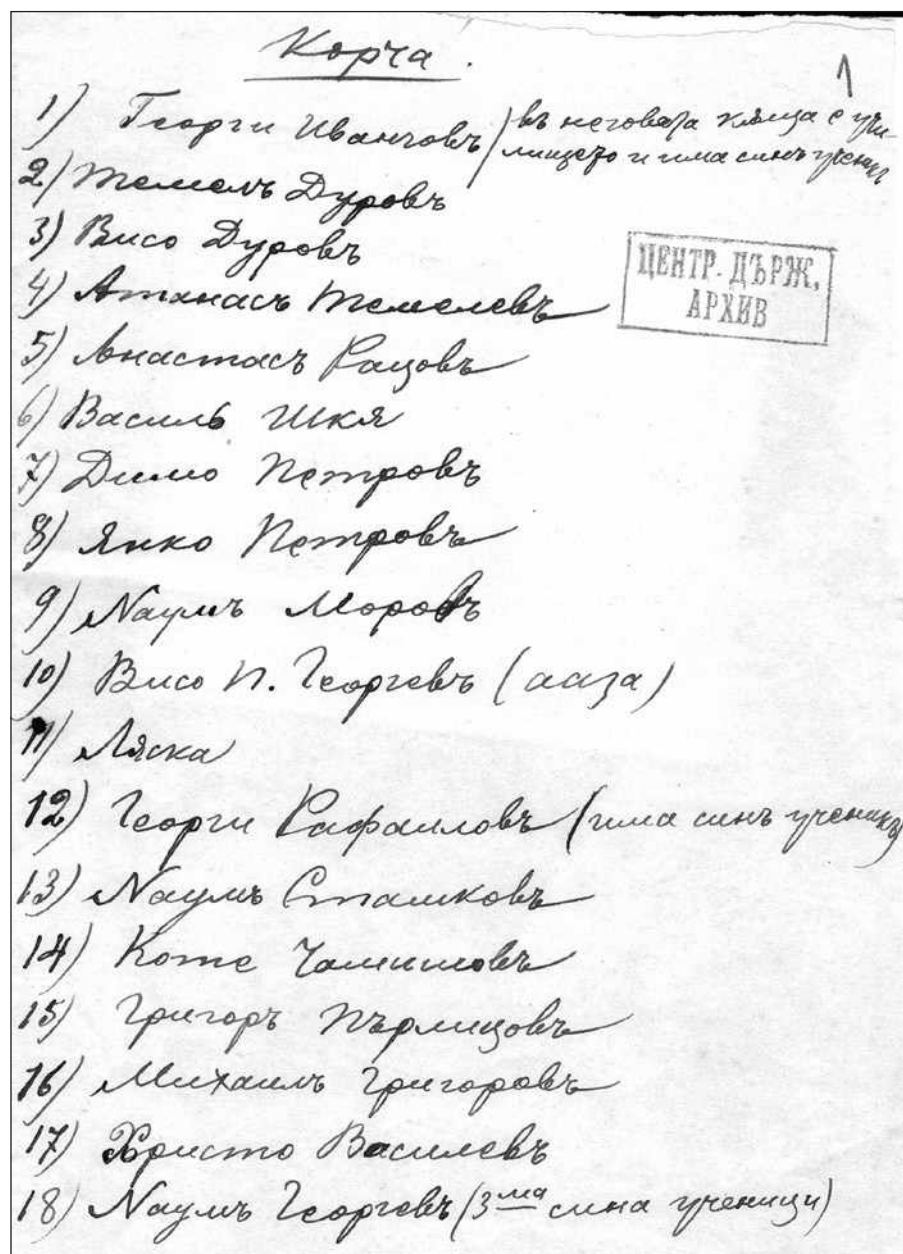 Корча.
1
1) Георги Иванчовъ (въ неговата кѫща е учи-
лището и има синъ ученикъ
2) Темелъ Дуровъ
3) Висо Дуровъ
ЦЕНТР. ДЪРЖ.
АРХИВ
4) Атанасъ Темелевъ
5) Анастасъ Рацовъ
6) Василь Шкя
7) Димо Петровъ
8) Янко Петровъ
9) Наумъ Моровъ
10) Висо П. Георгевъ (ааза)
11) Ляска
12) Георги Рафаиловъ (има синъ ученикъ)
13) Наумъ Сташковъ
14) Коте
15) Григоръ Пърлицовъ
16) Михаилъ Григоровъ
17) Христо Василевъ
18) Наумъ Георгевъ (3ма сина ученици)